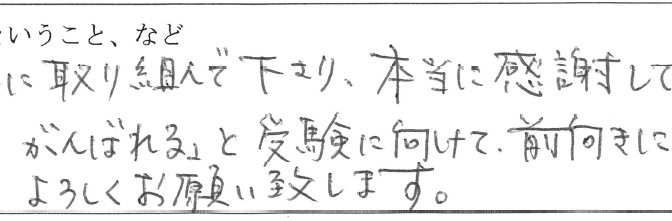 いうこと、など
に取り組んで下さり、本当に感謝して
がんばれる」と受験に向けて、前向きに
よろしくお願い致します。